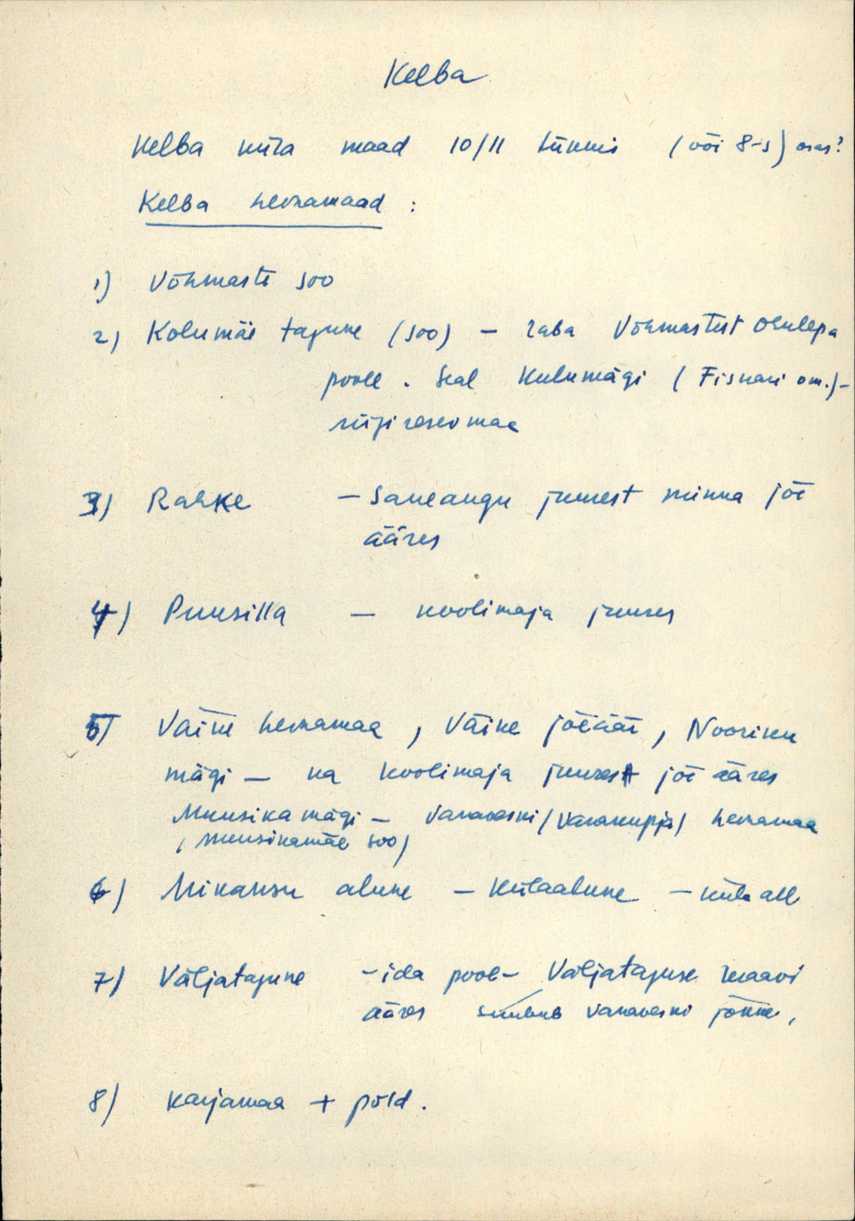 Kelba
Kelba küla maad 10/11 tükkis (või 8-s) osas?
Kelba heinamaad :
1) Võhmaste soo
2) Kolumäe tagune (soo) – raba Võhmastest
poole. Seal Kulumägi ( om.)–
riigireservmaa
3) Rahke – Saueaugu juurest minna jõe
ääres
4) Puusilla – koolimaja juures
5) Väike heinamaa, Väike jõeäär, Nooriku
mägi – ka koolimaja juures jõe ääres
Muusika mägi – Vanaveski/Vanakupja/ heinamaa
(Muusikamäe soo)
6) alune – Külaalune – küla all
7) Väljataguse – ida pool – Väljataguse kraavi
ääres suubub Vanaveski jõkke,
8) Karjamaa + põld.